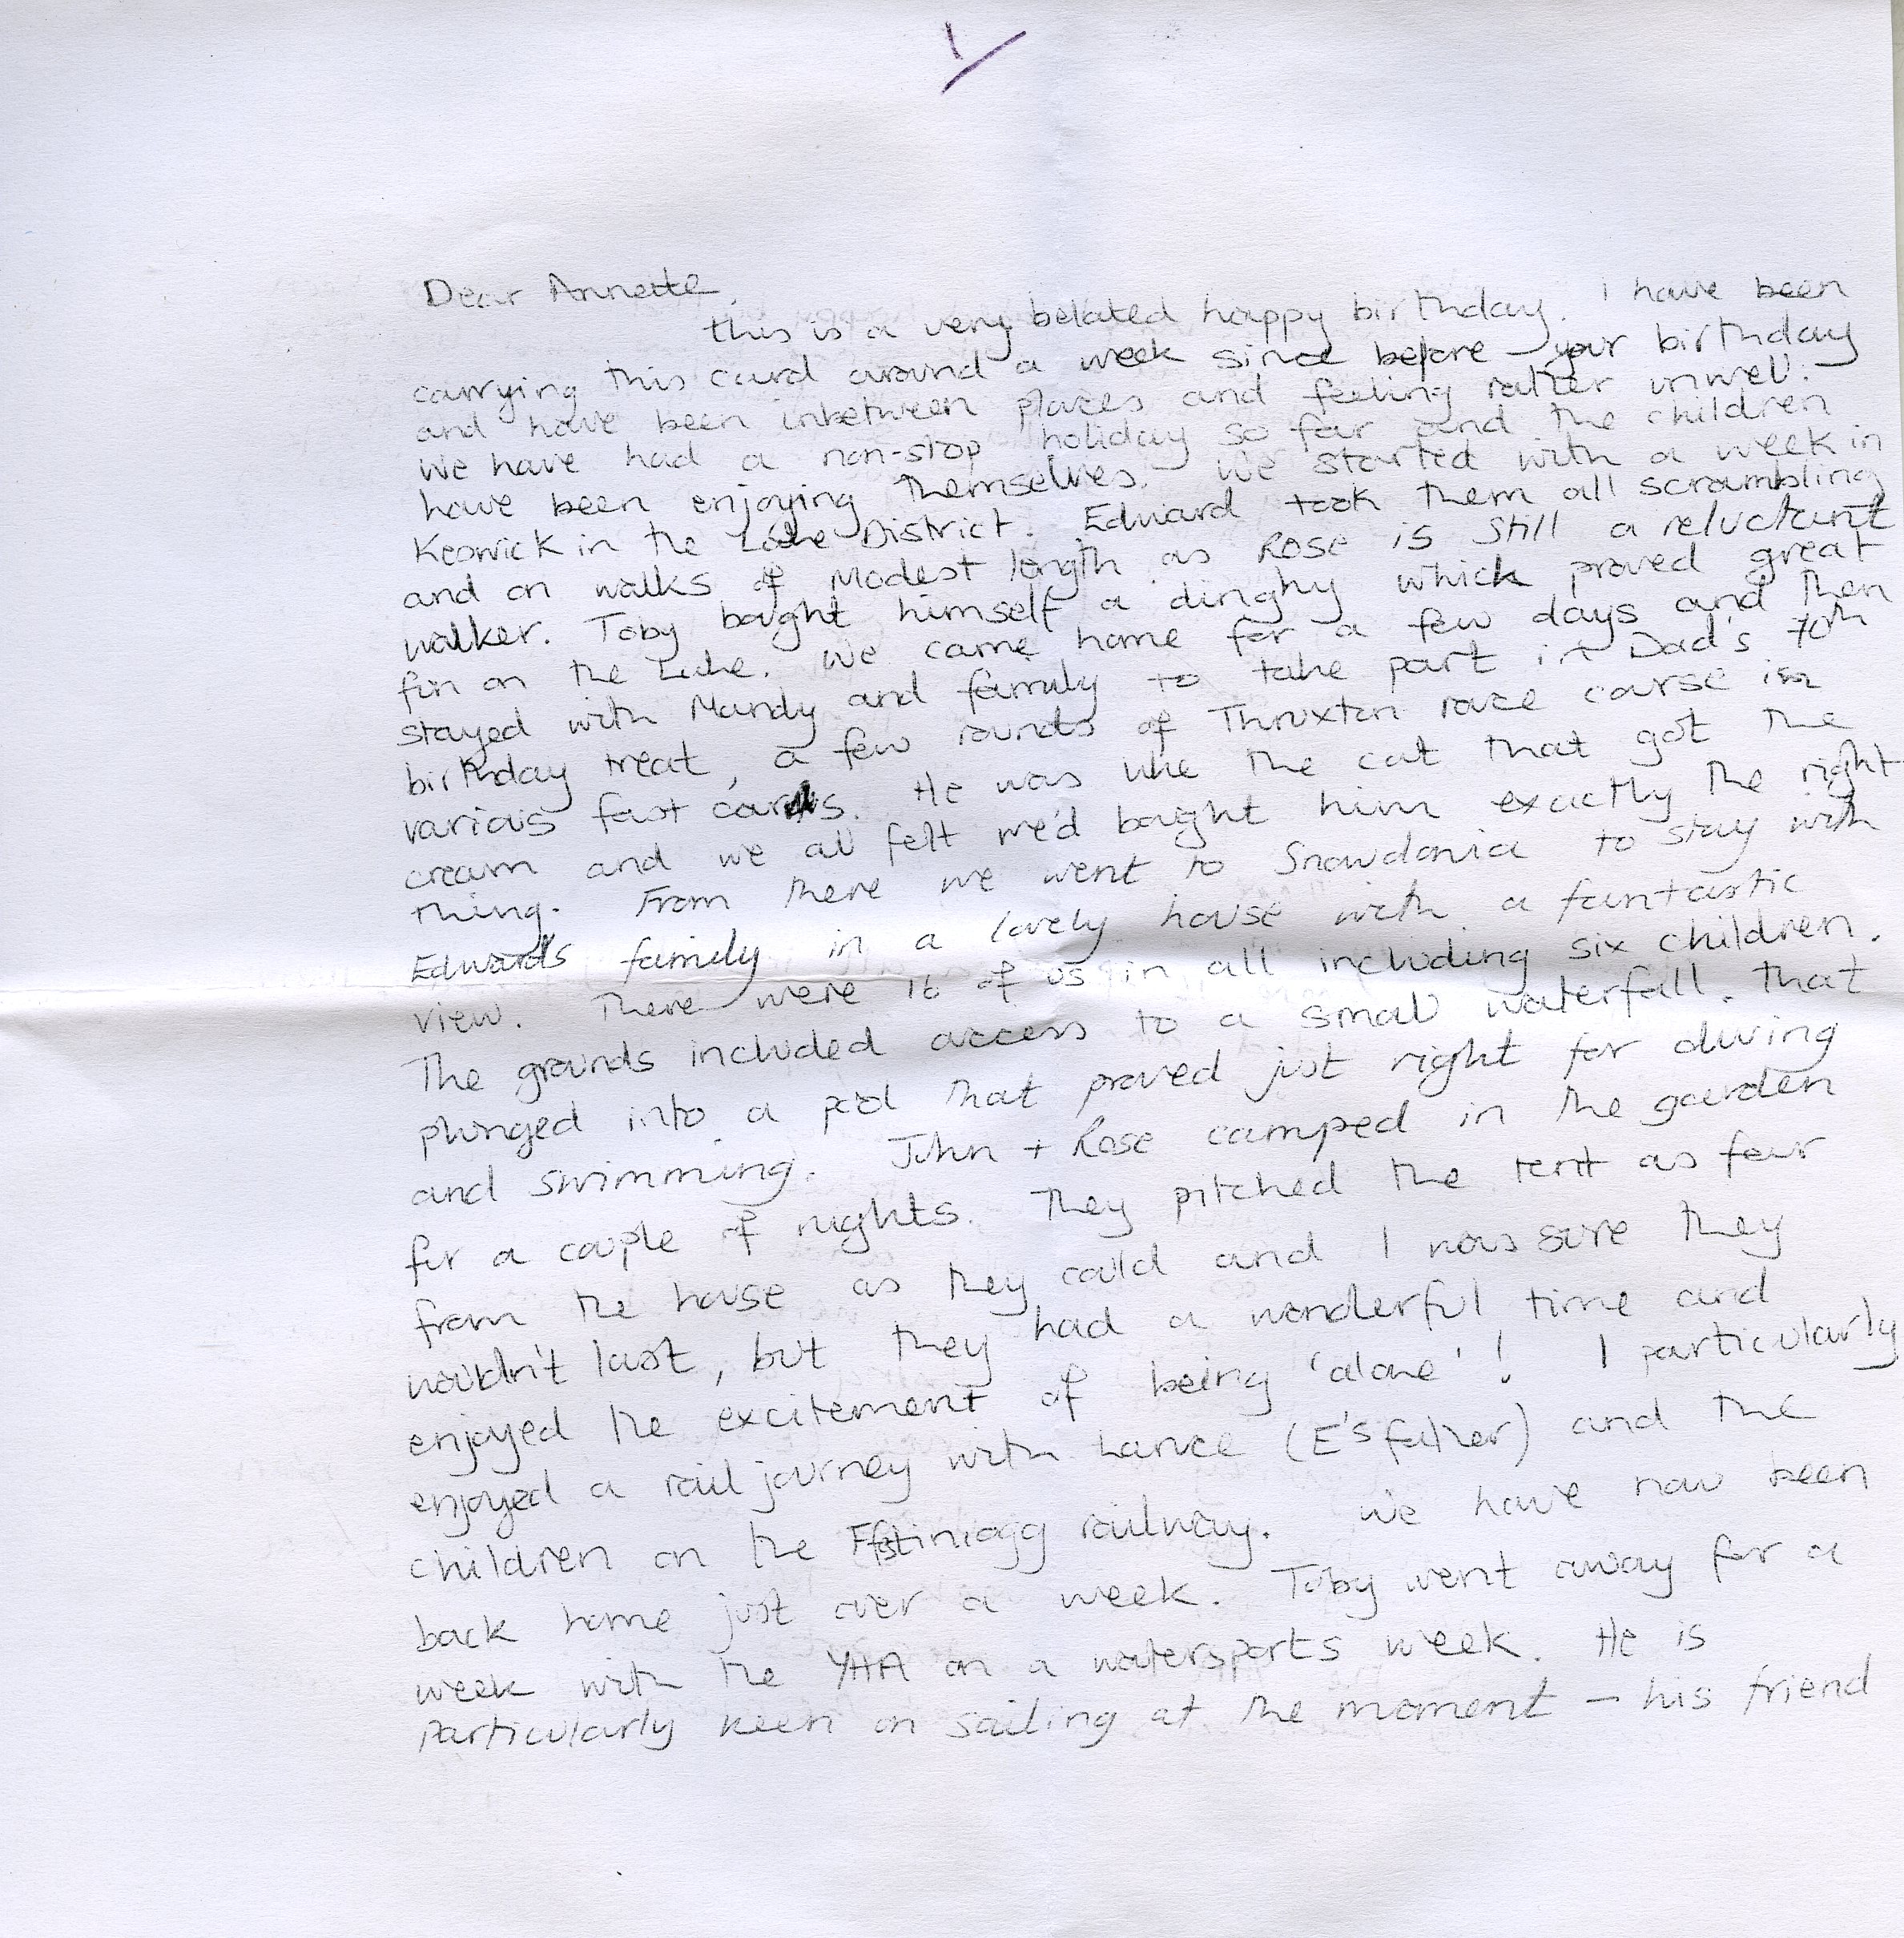 Dear Annette,
this is a very belated happy birthday. I have been
carrying this card around a week since before your birthday
and have been inbetween places and feeling rather unwell.
We have had a non-stop holiday so far and the children
have been enjoying themselves. We started with a week in
Keswick in the Lake District. Edward took them all scrambling
and on walks of modest length as Rose is still a reluctant
walker. Toby bought himself a dinghy which proved great
fun on the Lake. We came home for a few days and then
stayed with Mandy and family to take part in Dad's 70th
birthday treat, a few rounds of Thruxton race course in
various fast cars. He was like the cat that got the
cream and we all felt we'd bought him exactly the right
thing. From there we went to Snowdonia to stay with
Edwards family in a lovely house with a fantastic
view. There were 16 of us in all including six children.
The grounds included access to a small waterfall. that
plunged into a pool that proved just right for diving
and swimming. John + Rose camped in the garden
for a couple of nights. They pitched the tent as far
from the house as they could and I was sure they
wouldn't last, but they had a wonderful time and
enjoyed the excitement of being 'alone'! I particularly
enjoyed a rail journey with Lance (E's father) and the
children on the railway. We have now been
back home just over a week. Toby went away for a
week with the YHA on a watersports week. He is
particularly keen on sailing at the moment – his friend